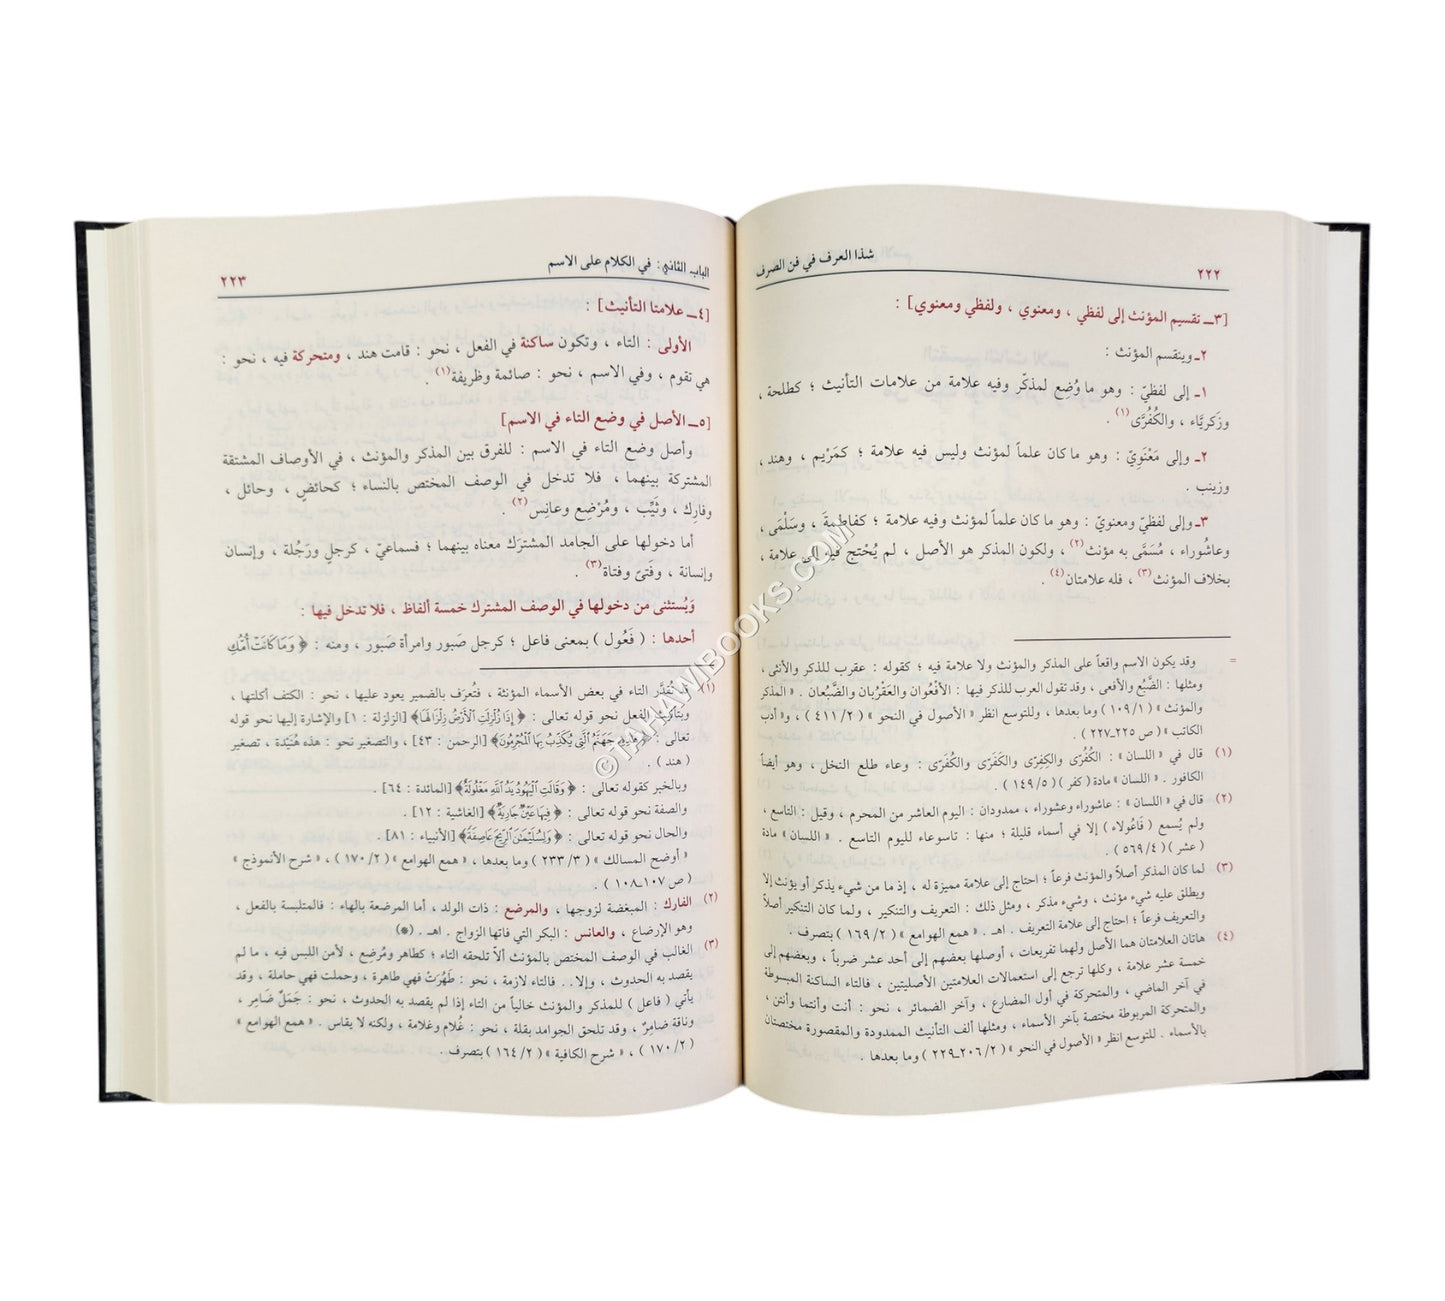 شذا العرف في فن الصرف
٢٢٢
[٣ـ تقسيم المؤنث إلى لفظي ، ومعنوي ، ولفظي ومعنوي] :
٢ـ وينقسم المؤنث :
١ـ إلى لفظيّ : وهو ما وُضِع لمذكّر وفيه علامة من علامات التأنيث ؛ كطلحة ،
وزَكريَّاء ، والكُفُرَّى(١) .
٢ـ وإلى مَعْنَوِيّ : وهو ما كان علماً لمؤنث وليس فيه علامة ؛ كمَرْيم ، وهند ،
وزينب .
٣ـ وإلى لفظيّ ومعنويّ : وهو ما كان علماً لمؤنث وفيه علامة ؛ كفاطمةَ ، وسَلْمَى ،
وعاشُوراء ، مُسَمَّى به مؤنث(٢) ، ولكون المذكر هو الأصل ، لم يُحْتج فيه إلى علامة ،
بخلاف المؤنث(٣) ، فله علامتان(٤) .
= وقد يكون الاسم واقعاً على المذكر والمؤنث ولا علامة فيه ؛ كقوله : عقرب للذكر والأنثى ،
ومثلها : الضَّبُع والأفعى ، وقد تقول العرب للذكر فيها : الأفْعُوان والعَقْرُبان والضِّبْعان . « المذكر
والمؤنث » ( ١/ ١٠٩ ) وما بعدها ، وللتوسع انظر « الأصول في النحو » ( ٢/ ٤١١ ) ، و« أدب
الكاتب » ( ص ٢٢٥ـ٢٢٧ ) .
(١) قال في « اللسان » : الكُفُرَّى والكِفِرَّى والكَفَرَّى والكُفَرَّى : وعاء طلع النخل ، وهو أيضاً
الكافور . « اللسان » مادة ( كفر ) ( ٥/ ١٤٩ ) .
(٢) قال في « اللسان » : عاشوراء وعشوراء ، ممدودان : اليوم العاشر من المحرم ، وقيل : التاسع ،
ولم يُسمع ( فَاعُولاء ) إلا في أسماء قليلة ؛ منها : تاسوعاء لليوم التاسع . « اللسان » مادة
( عشر ) ( ٤/ ٥٦٩ ) .
(٣) لما كان المذكر أصلاً والمؤنث فرعاً ؛ احتاج إلى علامة مميزة له ، إذ ما من شيء يذكر أو يؤنث إلا
ويطلق عليه شيء مؤنث ، وشيء مذكر ، ومثل ذلك : التعريف والتنكير ، ولما كان التنكير أصلاً
والتعريف فرعاً ؛ احتاج إلى علامة التعريف . اهـ . « همع الهوامع » ( ٢/ ١٦٩ ) بتصرف .
(٤) هاتان العلامتان هما الأصل ولهما تفريعات ، أوصلها بعضهم إلى أحد عشر ضرباً ، وبعضهم إلى
خمسة عشر علامة ، وكلها ترجع إلى استعمالات العلامتين الأصليتين ، فالتاء الساكنة المبسوطة
في آخر الماضي ، والمتحركة في أول المضارع ، وآخر الضمائر ، نحو : أنت وأنتما وأنتن ،
والمتحركة المربوطة مختصة بآخر الأسماء ، ومثلها ألف التأنيث الممدودة والمقصورة مختصتان
بالأسماء . للتوسع انظر « الأصول في النحو » ( ٢/ ٢٠٦ـ٢٢٩ ) وما بعدها .
الباب الثاني: في الكلام على الاسم
٢٢٣
[٤ـ علامتا التأنيث] :
الأولى : التاء ، وتكون ساكنة في الفعل ، نحو : قامت هند ، ومتحركة فيه ، نحو :
هي تقوم ، وفي الاسم ، نحو : صائمة وظريفة(١) .
[٥ـ الأصل في وضع التاء في الاسم]
وأصل وضع التاء في الاسم : للفرق بين المذكر والمؤنث ، في الأوصاف المشتقة
المشتركة بينهما ، فلا تدخل في الوصف المختص بالنساء ؛ كحائضٍ ، وحائل ،
وفارِك ، وثَيِّب ، ومُرْضِع وعانِس(٢) .
أما دخولها على الجامد المشترَك معناه بينهما ؛ فسماعيّ ، كرجلٍ ورَجُلة ، وإنسان
وإنسانة ، وفَتىً وفتاة(٣) .
وَيُستثنى من دخولها في الوصف المشترك خمسة ألفاظ ، فلا تدخل فيها :
أحدها : ( فَعُول ) بمعنى فاعل ؛ كرجل صَبور وامرأة صَبور ، ومنه : ﴿ وَمَا كَانَتْ أُمُّكِ
(١) قد تُقدَّر التاء في بعض الأسماء المؤنثة ، فتُعرَف بالضمير يعود عليها ، نحو : الكتف أكلتها ،
وبتأنيث الفعل نحو قوله تعالى : ﴿ إِذَا زُلْزِلَتِ الْأَرْضُ زِلْزَالَهَا﴾ [الزلزلة : ١] والإشارة إليها نحو قوله
تعالى : ﴿ هَٰذِهِ جَهَنَّمُ الَّتِي يُكَذِّبُ بِهَا الْمُجْرِمُونَ﴾ [الرحمن : ٤٣] ، والتصغير نحو : هذه هُنَيْدة ، تصغير
( هند ) .
وبالخبر كقوله تعالى : ﴿ وَقَالَتِ الْيَهُودُ يَدُ اللَّهِ مَغْلُولَةٌ﴾ [المائدة : ٦٤] .
والصفة نحو قوله تعالى : ﴿ فِيهَا عَيْنٌ جَارِيَةٌ﴾ [الغاشية : ١٢] .
والحال نحو قوله تعالى : ﴿ وَلِسُلَيْمَانَ الرِّيحَ عَاصِفَةً﴾ [الأنبياء : ٨١] .
« أوضح المسالك » ( ٣/ ٢٣٣ ) وما بعدها ، « همع الهوامع » ( ٢/ ١٧٠ ) ، « شرح الأنموذج »
( ص ١٠٧ـ١٠٨ ) .
(٢) الفارك : المبغضة لزوجها ، والمرضع : ذات الولد ، أما المرضعة بالهاء : فالمتلبسة بالفعل ،
وهو الإرضاع ، والعانس : البكر التي فاتها الزواج . اهـ . (*)
(٣) الغالب في الوصف المختص بالمؤنث ألاّ تلحقه التاء ؛ كطاهر ومُرضِع ، لأمن اللبس فيه ، ما لم
يقصد به الحدوث ، وإلا.. فالتاء لازمة ، نحو : طَهُرَتْ فهي طاهرة ، وحملت فهي حاملة ، وقد
يأتي ( فاعل ) للمذكر والمؤنث خالياً من التاء إذا لم يقصد به الحدوث ، نحو : جَمَلٌ ضَامِر ،
وناقة ضامِرٌ ، وقد تلحق الجوامد بقلة ، نحو : غُلام وغلامة ، ولكنه لا يقاس . « همع الهوامع »
( ٢/ ١٧٠ ) ، « شرح الكافية » ( ٢/ ١٦٤ ) بتصرف .
©TAHAWIBOOKS.COM